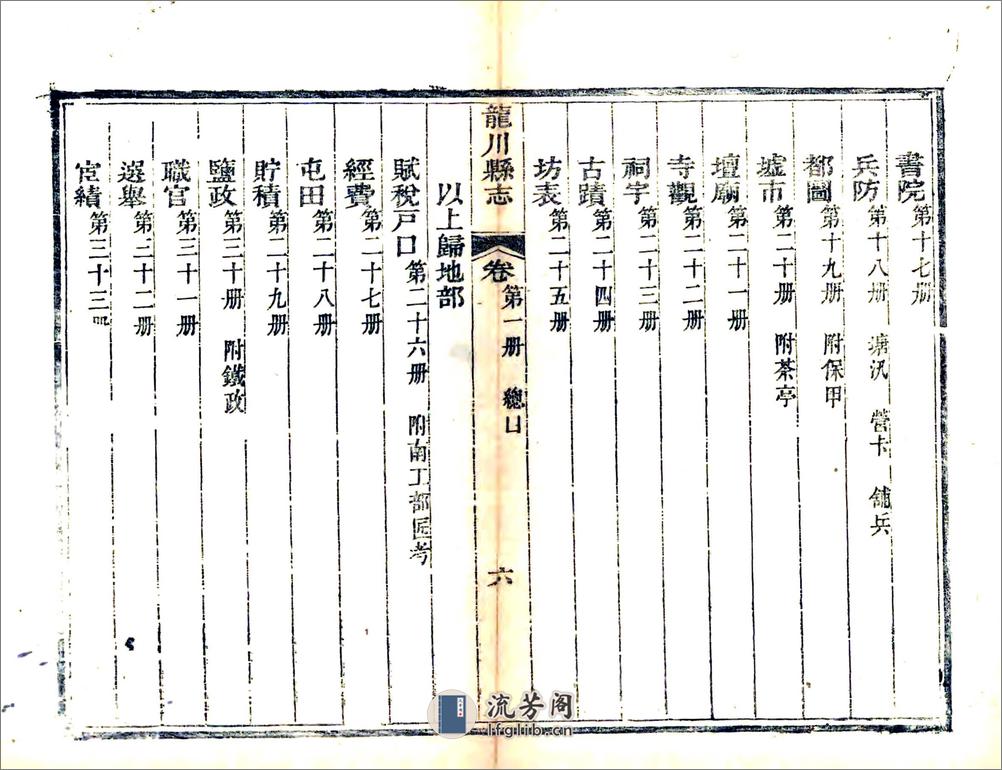 書院第十七册
兵防第十八册 塘汛 營卡 舖兵
都圖第十九册 附保甲
墟市第二十册 附茶亭
壇廟第二十一册
寺觀第二十二册
祠宇第二十三册
古蹟第二十四册
坊表第二十五册
龍川縣志 卷 第一册 總目 六
以上歸地部
賦稅戶口第二十六册 附南工部匠考
經費第二十七册
屯田第二十八册
貯積第二十九册
鹽政第三十册 附鐵政
職官第三十一册
選舉第三十二册
宦績第三十三册
流芳阁
lfglib.cn